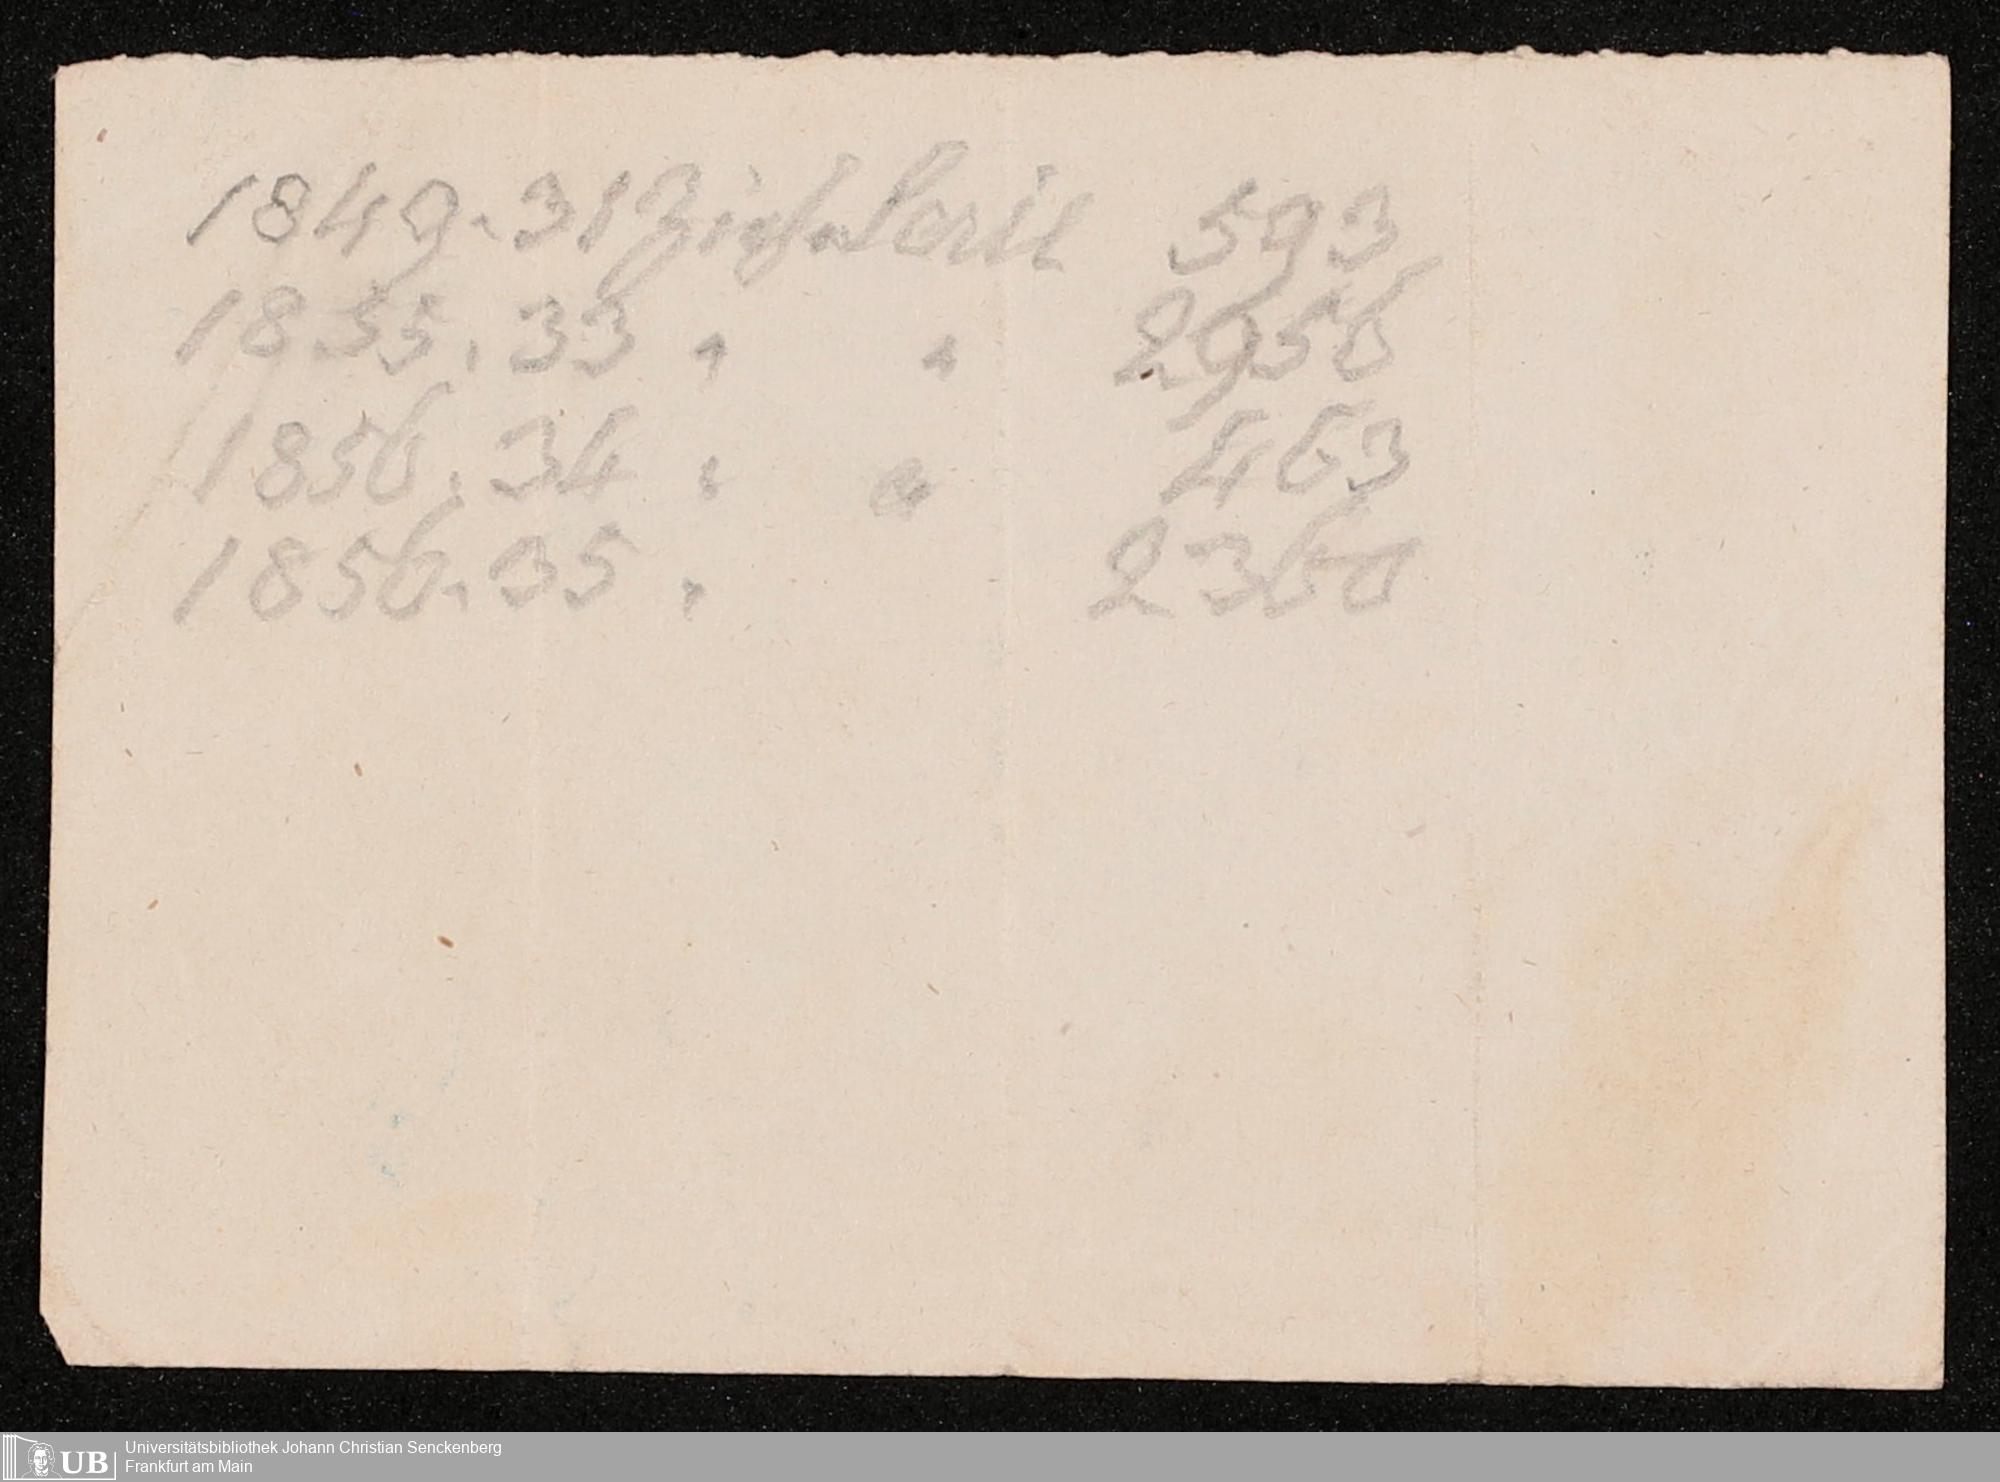 1849. 31 Zieh. Serie 593
1855. 33 " " 2956
1856. 34 " " 463
1856. 35 " 2360
UB
Universitätsbibliothek Johann Christian Senckenberg
Frankfurt am Main